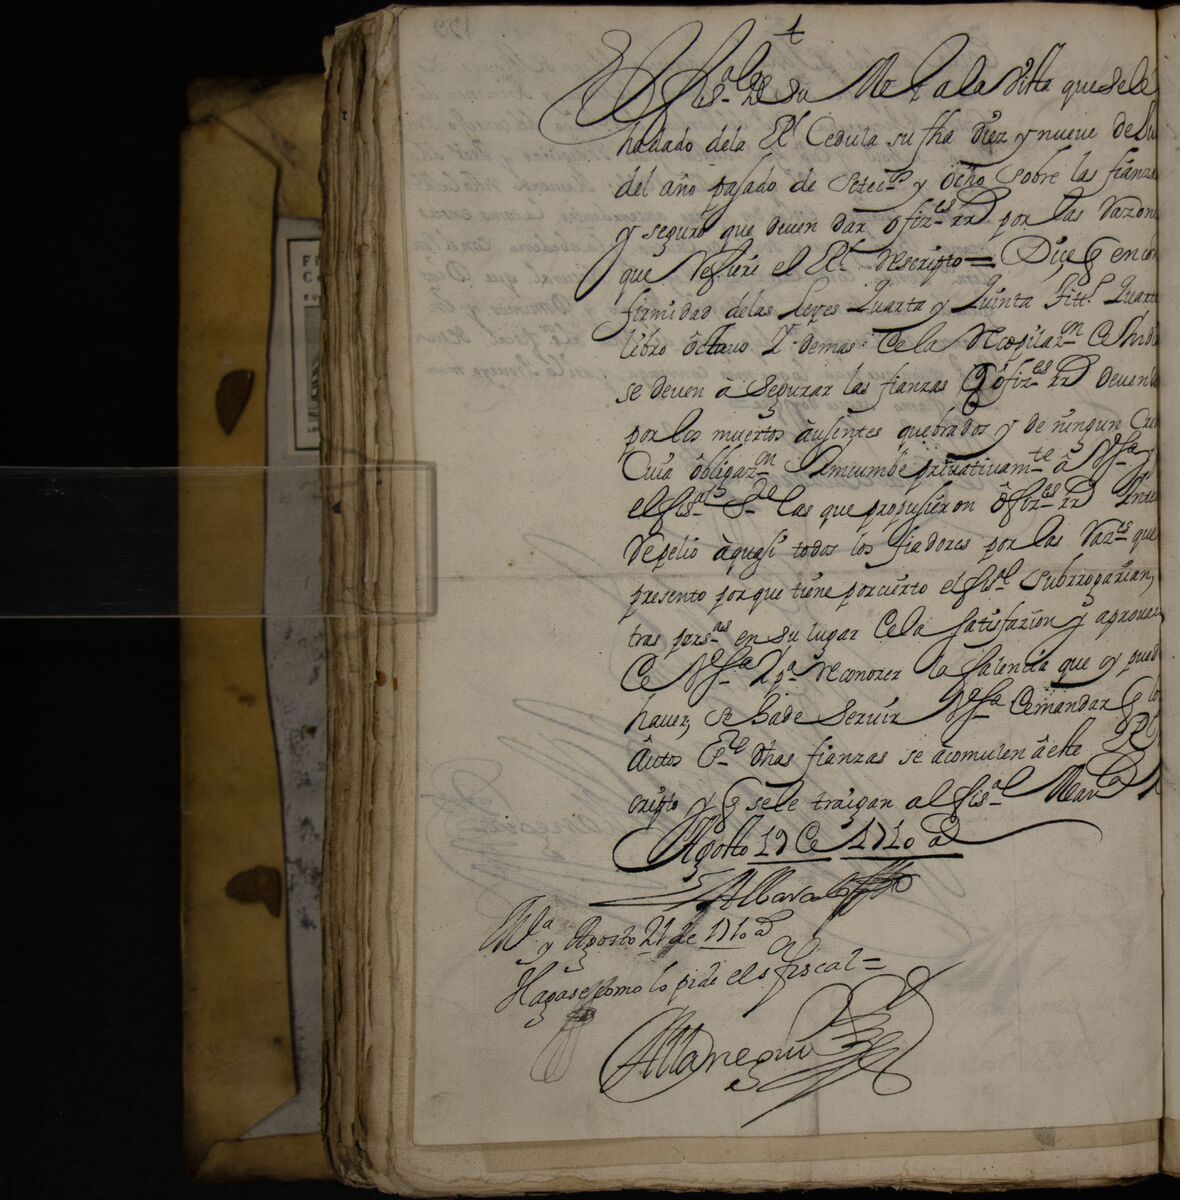 +
El fis.l de su Mag.d a la vista que se le
ha dado dela R.l Cedula su fha diez y nueve de
del año pasado de setec.s y ocho sobre las fianzas
y seguro que deven dar ofiz.es RR.s por las Razone
que Refiere el R.l Rescripto = Dice q en con
firmidad delas Leyes Quarta y Quinta titt.o Quarto
libro octavo y demas de la Recopilaz.n de Indi
se deven à segurar las fianzas q ofiz.es RR.s deven
por los muertos àusentes quebrados y de ningun
Cuia obligaz.n Imcumbe privativam.te à V.sa y
el fis.l de las que propusieron ofiz.es RR.s
Repelio à quasi todos los fiadores por las Raz.es que
presento por que tiene por cierto el fis.l subrrogarian
tras pers.as en su lugar de la satisfazion y aprovaz
de V.sa y p.a Reconozer la falencia que oy pued
haver, se ha de servir V.sa de mandar q los
àutos dhas fianzas se àcomulen à este R.l
cripto y q se le traigan al fis.l Man.la y
Agosto 19 de 1710 a.s
M.la y Agosto 21 de 1710 a.s
Hagase como lo pide el s.r fiscal =